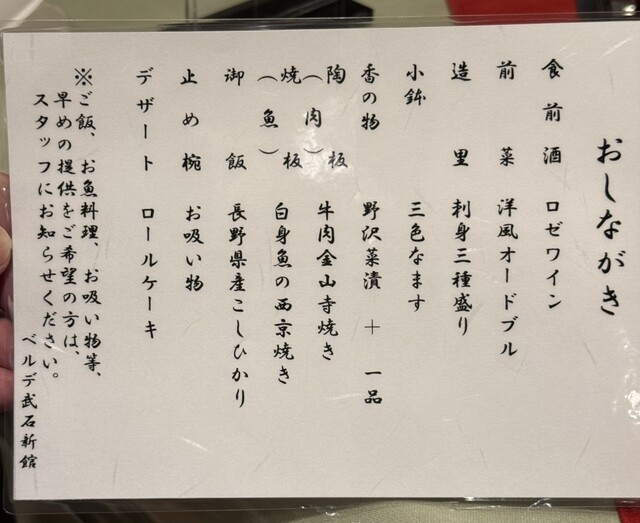 おしながき
食前酒 ロゼワイン
前菜 洋風オードブル
造里 刺身三種盛り
小鉢 三色なます
香の物 野沢菜漬 + 一品
陶板(肉) 牛肉金山寺焼き
焼板(魚) 白身魚の西京焼き
御飯 長野県産こしひかり
止め椀 お吸い物
デザート ロールケーキ
※ご飯、お魚料理、お吸い物等、
早めの提供をご希望の方は、
スタッフにお知らせください。
ベルデ武石新館